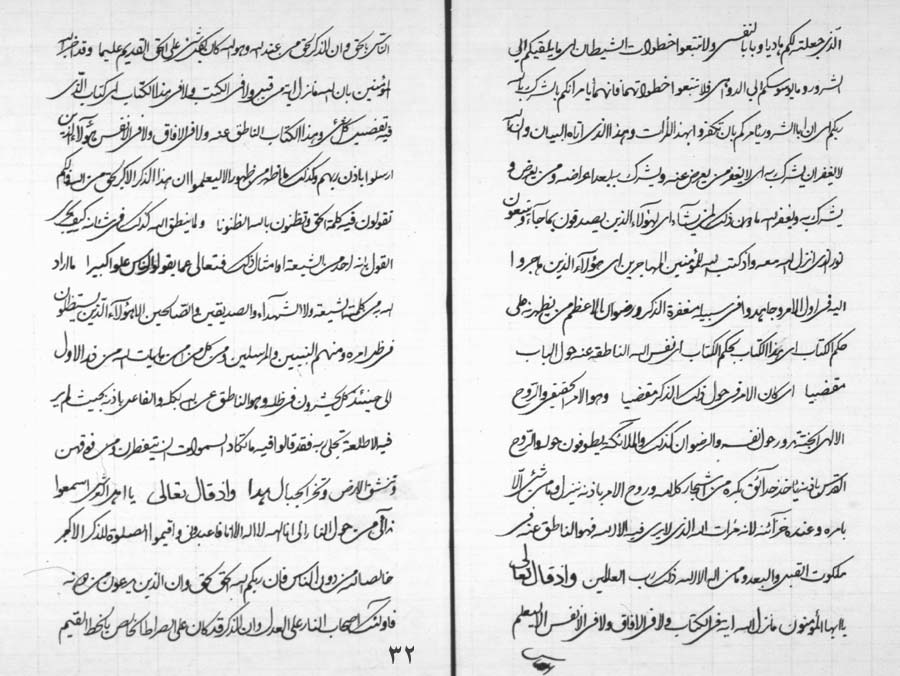 الذي جعلته لكم هاديا وبابا لنفسي ولا تتبعوا خطوات الشيطان اي ما يلقيكم الى
الشرور وما يوسوسكم الى الدو فلا تتبعوا خطواتهما فانهما يامرانكم بالشرك بالله
ربكم اي ان ابا الشرور يأمركم بان تكفروا بهذا المرات وهذا الذي اتاه البيان وان الله
لا يغفر ان يشرك به اي لا يغفر من يعرض عنه ويشرك به بعد اعراضه ومن يعرض و
يشرك به ويغفر الله ما دون ذلك لمن يشاء اي لهؤلاء الذين يصدقون بما جاء ويتبعون
نور الذي انزل الله معه واذ كتب الله للمؤمنين المهاجرين اي هؤلاء الذين هاجروا
اليه في اول الامر وجاهدوا في سبيله مغفرة الذكر ورضوان الاعظم من يظهر على
حكم الكتاب اي بهذا الكتاب بحكم الكتاب اي نفس الله الناطقة عند حول الباب
مقضيا اي كان الامر في حول ذلك الذكر مقضيا وهو الامر الحقيقي والروح
الالهي الجنة تدور حول نفسه والرضوان كذلك والملائكة يطوفون حوله والروح
القدس باذنه ياخذ حدائق بكره من شجار كلامه وروح الامر باذنه ينزل وما من شئ الا
بامره وعنده خزائنه لانه مرات الله الذي لا يرى فيه الا الله فهو الناطق عنه في
ملكوت القرب والبعد وما من اله الا الله ذلك رب العالمين واذ قال تعالى
يا ايها المؤمنون ما نزل الله اية في الكتاب ولا في الافاق ولا في الانفس الا ليعلم
الناس بالحق وان الذكر لحق من عند الله وهو الله كان بكل شئ على الحق القديم عليما وقد اخبر الله
المؤمنين بان الله ما نزل اية من قبل ولا في الكتب ولا في هذا الكتاب اي كتاب الذي
فيه تفضيل كل شئ وهذا الكتاب الناطق عنه ولا في الافاق ولا في الانفس هؤلاء الذين
ارسلوا باذن ربهم وكذلك ما ظهر من ظهور الا ليعلموا ان هذا الذكر الاكبر لحق من الله فما لكم
تقولون فيه كلمة الحق وتظنون بالله الظنونا وما ينطق الله كذلك في شانه كيف يجري
القول بانه احد من الشيعة او امثال ذلك فتعالى عما يقولون الناس علوا كبيرا ما اراد
الله من كلمة الشيعة ولا الشهداء والصديقين والصالحين الا هؤلاء الذين يستظلون
في ظل امره ومنهم النبيين والمرسلين ومن كل من امن بايات الله من قبل الاول
الى حينئذ كل يحشرون في ظله وهو الناطق عن الله بكله والفاعل باذنه بحيث لم ير
فيه الا طلعة تجلى به فقد قالوا فيه ما تكاد السموات ان يتفطرن من فوقهن
وتنشق الارض وتخر الجبال هدا واذ قال تعالى يا اهل الارض اسمعوا
ندائي من حول النار اني انا الله لا اله الا انا فاعبدني واقيموا الصلوة للذكر الاكبر
خالصا من دون الناس فان ربكم الله لحق بحق وان الذين يدعون من دونه
فاولئك اصحاب النار على العدل وان الذكر قد كان على الصراط الخالص بالخط القيم
٣٢